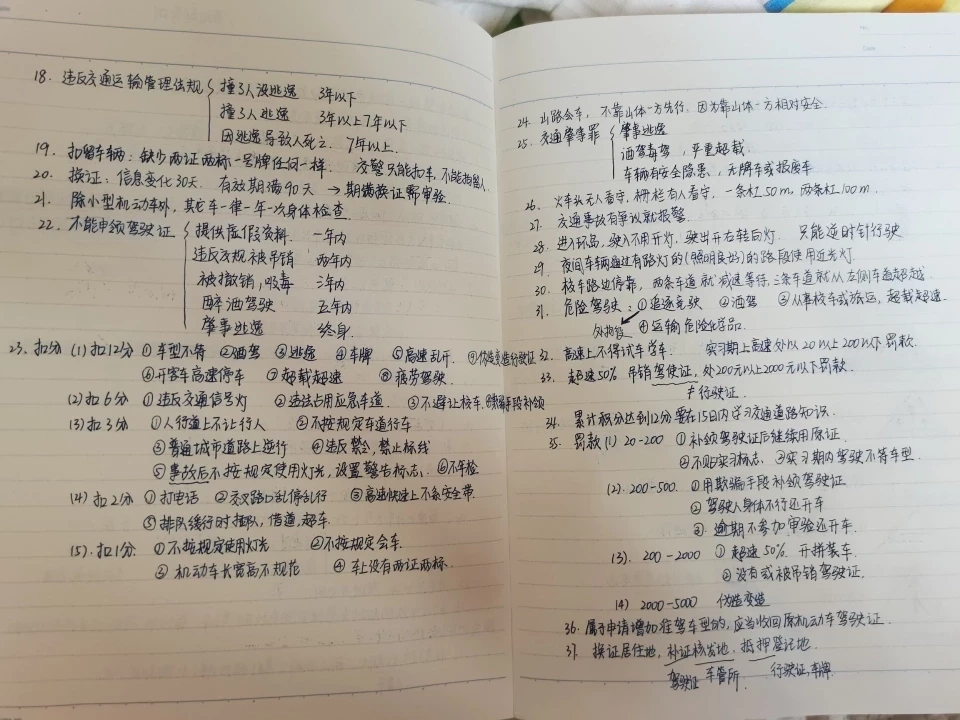 18. 违反交通运输管理法规 撞了人没逃逸 3年以下
撞了人逃逸 3年以上7年以下
因逃逸导致人死亡. 7年以上.
19. 扣留车辆: 缺少两证两标一号牌任何一样. 交警只能扣车,不能拘留人.
20. 换证: 信息变化30天. 有效期满90天 → 期满换证需审验.
21. 除小型机动车外, 其它车一律一年一次身体检查.
22. 不能申领驾驶证 提供虚假资料. 一年内
违反法规被吊销 两年内
被撤销, 吸毒 三年内
醉酒驾驶 五年内
肇事逃逸 终身.
23. 扣分 (1) 扣12分 ①车型不符 ②酒驾 ③逃逸 ④车牌 ⑤高速乱开. ⑨伪造变造行驶证
⑥开客车高速停车 ⑦超载超速 ⑧疲劳驾驶.
(2) 扣6分 ①违反交通信号灯 ②违法占用应急车道. ③不避让校车. 手段补领
(3) 扣3分 ①人行道上不让行人 ②不按规定车道行车
③普通城市道路上逆行 ④违反禁令, 禁止标线
⑤事故后不按规定使用灯光, 设置警告标志. ⑥不年检
(4) 扣2分 ①打电话 ②交叉路口乱停乱行 ③高速快速上不系安全带.
⑤排队缓行时插队, 借道, 超车.
(5). 扣1分: ①不按规定使用灯光 ②不按规定会车.
③机动车长宽高不规范 ④车上没有两证两标.
24. 山路会车, 不靠山体一方先行, 因为靠山体一方相对安全.
25. 交通肇事罪 肇事逃逸
酒驾毒驾, 严重超载.
车辆有安全隐患, 无牌车或报废车
26. 火车头无人看守, 栅栏有人看守, 一条杠50m, 两条杠100m.
27. 交通事故有争议就报警.
28. 进入环岛, 驶入不用开灯. 驶出开右转向灯. 只能逆时针行驶
29. 夜间车辆通过有路灯的(照明良好)的路段使用近光灯.
30. 校车路边停靠, 两条车道就减速等待, 三条车道就从左侧车道超越.
31. 危险驾驶: ①追逐竞驶 ②酒驾 ③从事校车或旅运, 超载超速.
处拘役 ④运输危险化学品.
32. 高速上不得试车学车. 实习期上高速处以20以上200以下罚款.
33. 超速50% 吊销驾驶证, 处200元以上2000元以下罚款.
≠行驶证.
34. 累计积分达到12分要在15日内学习交通道路知识.
35. 罚款 (1) 20-200 ①补领驾驶证后继续用原证.
②不贴实习标志. ③实习期内驾驶不符车型.
(2). 200-500. ①用欺骗手段补领驾驶证
②驾驶人身体不行还开车
③. 逾期不参加审验还开车.
(3). 200-2000 ①超速50%. 开拼装车.
②没有或被吊销驾驶证.
(4) 2000-5000 伪造变造
36. 属于申请增加准驾车型的, 应当收回原机动车驾驶证.
37. 换证居住地, 补证核发地. 抵押登记地.
驾驶证 车管所. 行驶证,车牌.